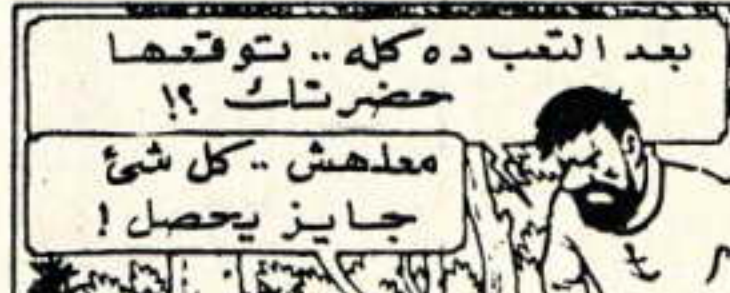 بعد التعب ده كله .. تتوقعها
حضرتك ؟!
معلهش .. كل شئ
جايز يحصل !